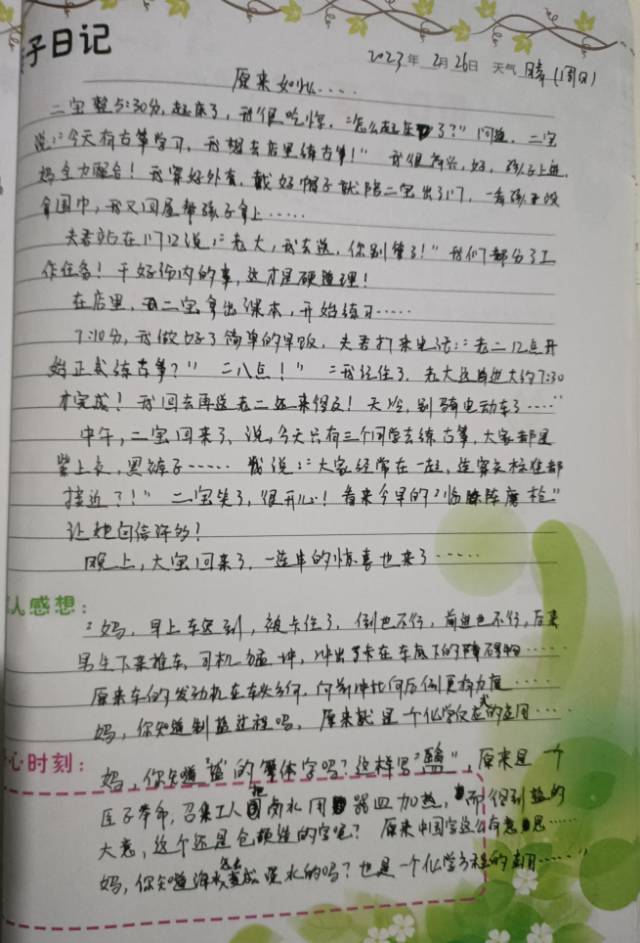 子日记
2023年 2月 26日 天气 晴 (周日)
原来如此.....
二宝 5:30分,起床了,我很吃惊,"怎么起床了?"问道,二宝
说:"今天有古筝学习,我想去店里练古筝!" 我很,好,孩子上进,
妈全力配合!我穿好外套,戴好帽子就陪二宝出了门,一看孩子没
拿围巾,我又回屋帮孩子拿上......
夫君站在门口说:"老大,我去送,你别管了!"我们都分了工
作任务!干好份内的事,这才是硬道理!
在店里,二宝拿出课本,开始练习......
7:10分,我做好了简单的早饭,夫君打来电话:"老二几点开
始正式练古筝?" "八点!" "我记住了,老大送到边大约7:30
才完成!我回去再送老二还来得及!天冷,别骑电动车了......"
中午,二宝回来了,说,今天只有三个同学去练古筝,大家都是
紫上衣,黑裤子...... 我说:"大家经常在一起,连穿衣标准都
接近了!" 二宝笑了,很开心!看来今早的"临阵磨枪"
让她自信许多!
晚上,大宝回来了,一连串的惊喜也来了......
人感想:
"妈,早上车迟到,被卡住了,倒也不行,前进也不行,后来
男生下来推车,司机猛冲,冲出了卡在车底下的障碍物......
原来车的发动机在车头方向,向前冲比向后倒更有力度......
妈,你知道制盐过程吗,原来就是一个化学反应式的应用....
心时刻:
妈,你知道"盐"的繁体字吗?这样写"鹽",原来是一个
臣子奉命,召集工人把卤水用器皿加热,而得到盐的
大意,这个还是仓颉造的字呢?原来中国字这么有意思......
妈,你知道海水怎么变成淡水的吗?也是一个化学方程的应用......"